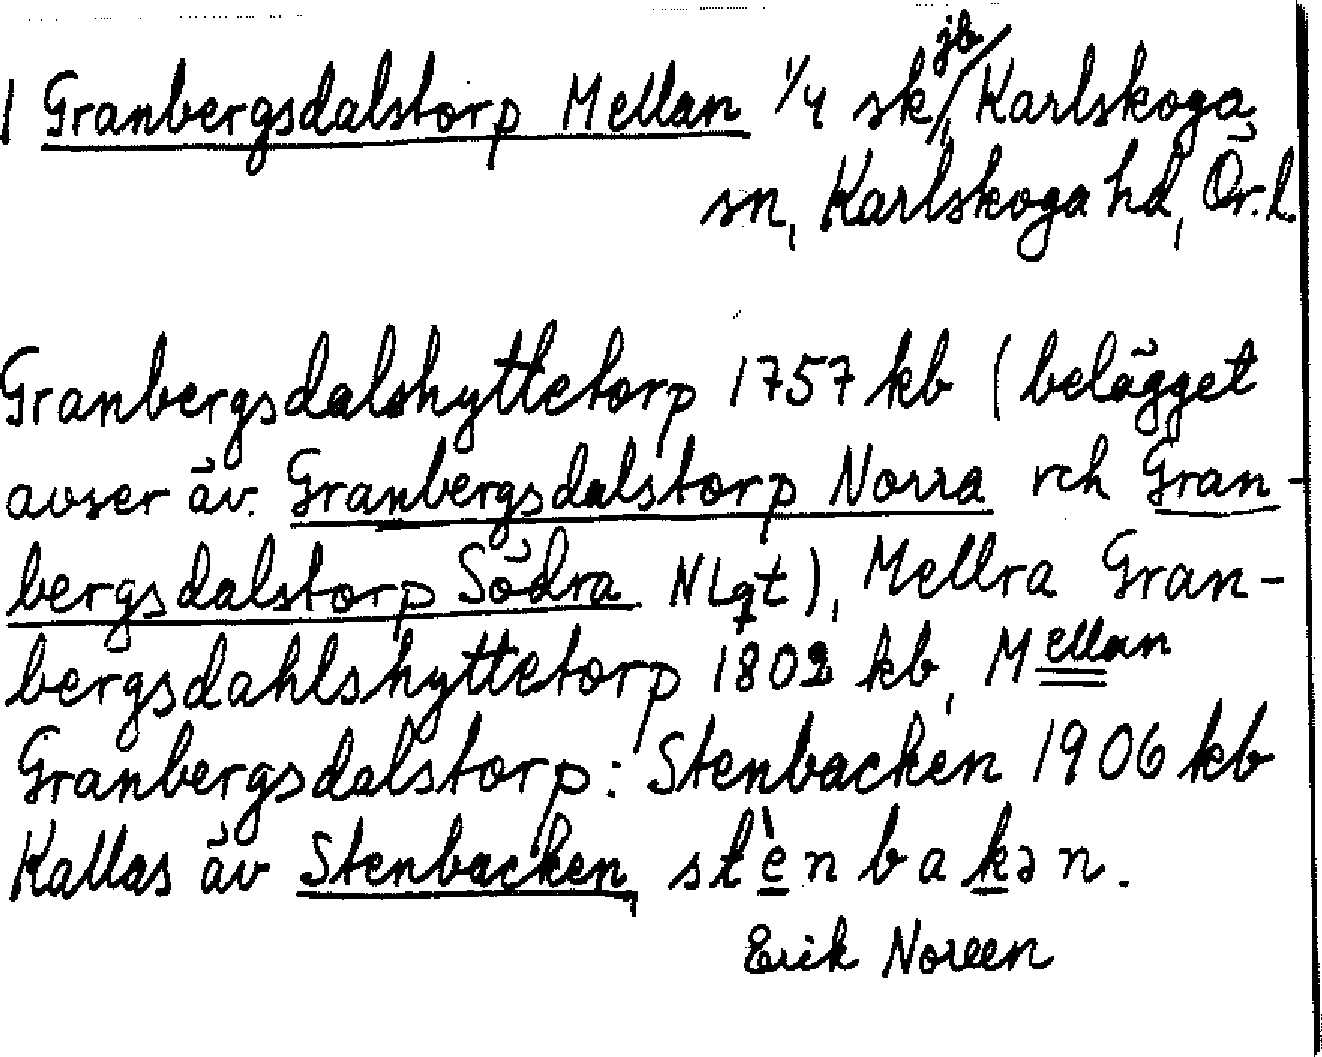 1 Granbergsdalstorp Mellan 1/4 sk jb / Karlskoga
sn, Karlskoga hd, Ör. l.
Granbergsdalshyttetorp 1757 kb (belägget
avser äv. Granbergsdalstorp Norra och Gran-
bergsdalstorp Södra N Lgt), Mellra Gran-
bergsdahlshyttetorp 1802 kb, Mellan
Granbergsdalstorp: Stenbacken 1906 kb
Kallas äv Stenbacken, stènbakən.
Erik Noreen